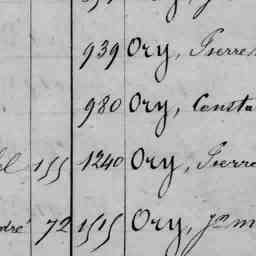 939 Ory, Pierre
980 Ory, Consta
155 1240 Ory, Pierre
dré 72 1515 Ory, Jn m